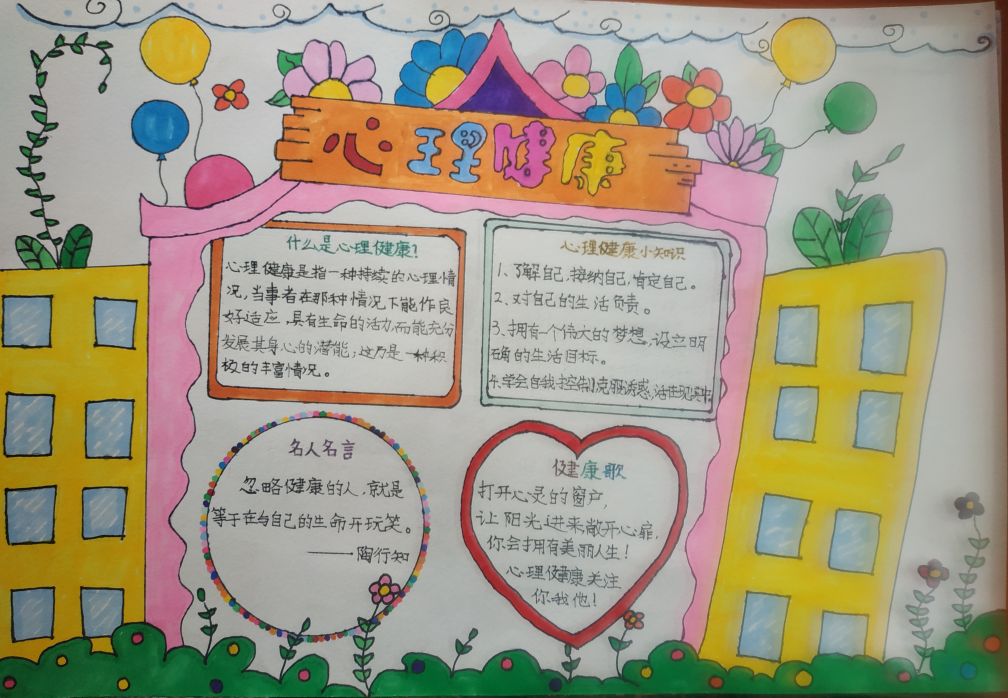 心理健康
什么是心理健康？
心理健康是指一种持续的心理情
况，当事者在那种情况下能作良
好适应，具有生命的活力而能充分
发展其身心的潜能；这乃是一种积
极的丰富情况。
心理健康小知识
1、了解自己，接纳自己，肯定自己。
2、对自己的生活负责。
3、拥有一个伟大的梦想，设立明
确的生活目标。
4、学会自我控制，克服诱惑，活在现实中
名人名言
忽略健康的人，就是
等于在与自己的生命开玩笑。
——陶行知
健康歌
打开心灵的窗户，
让阳光进来敞开心扉，
你会拥有美丽人生！
心理健康关注
你我他！